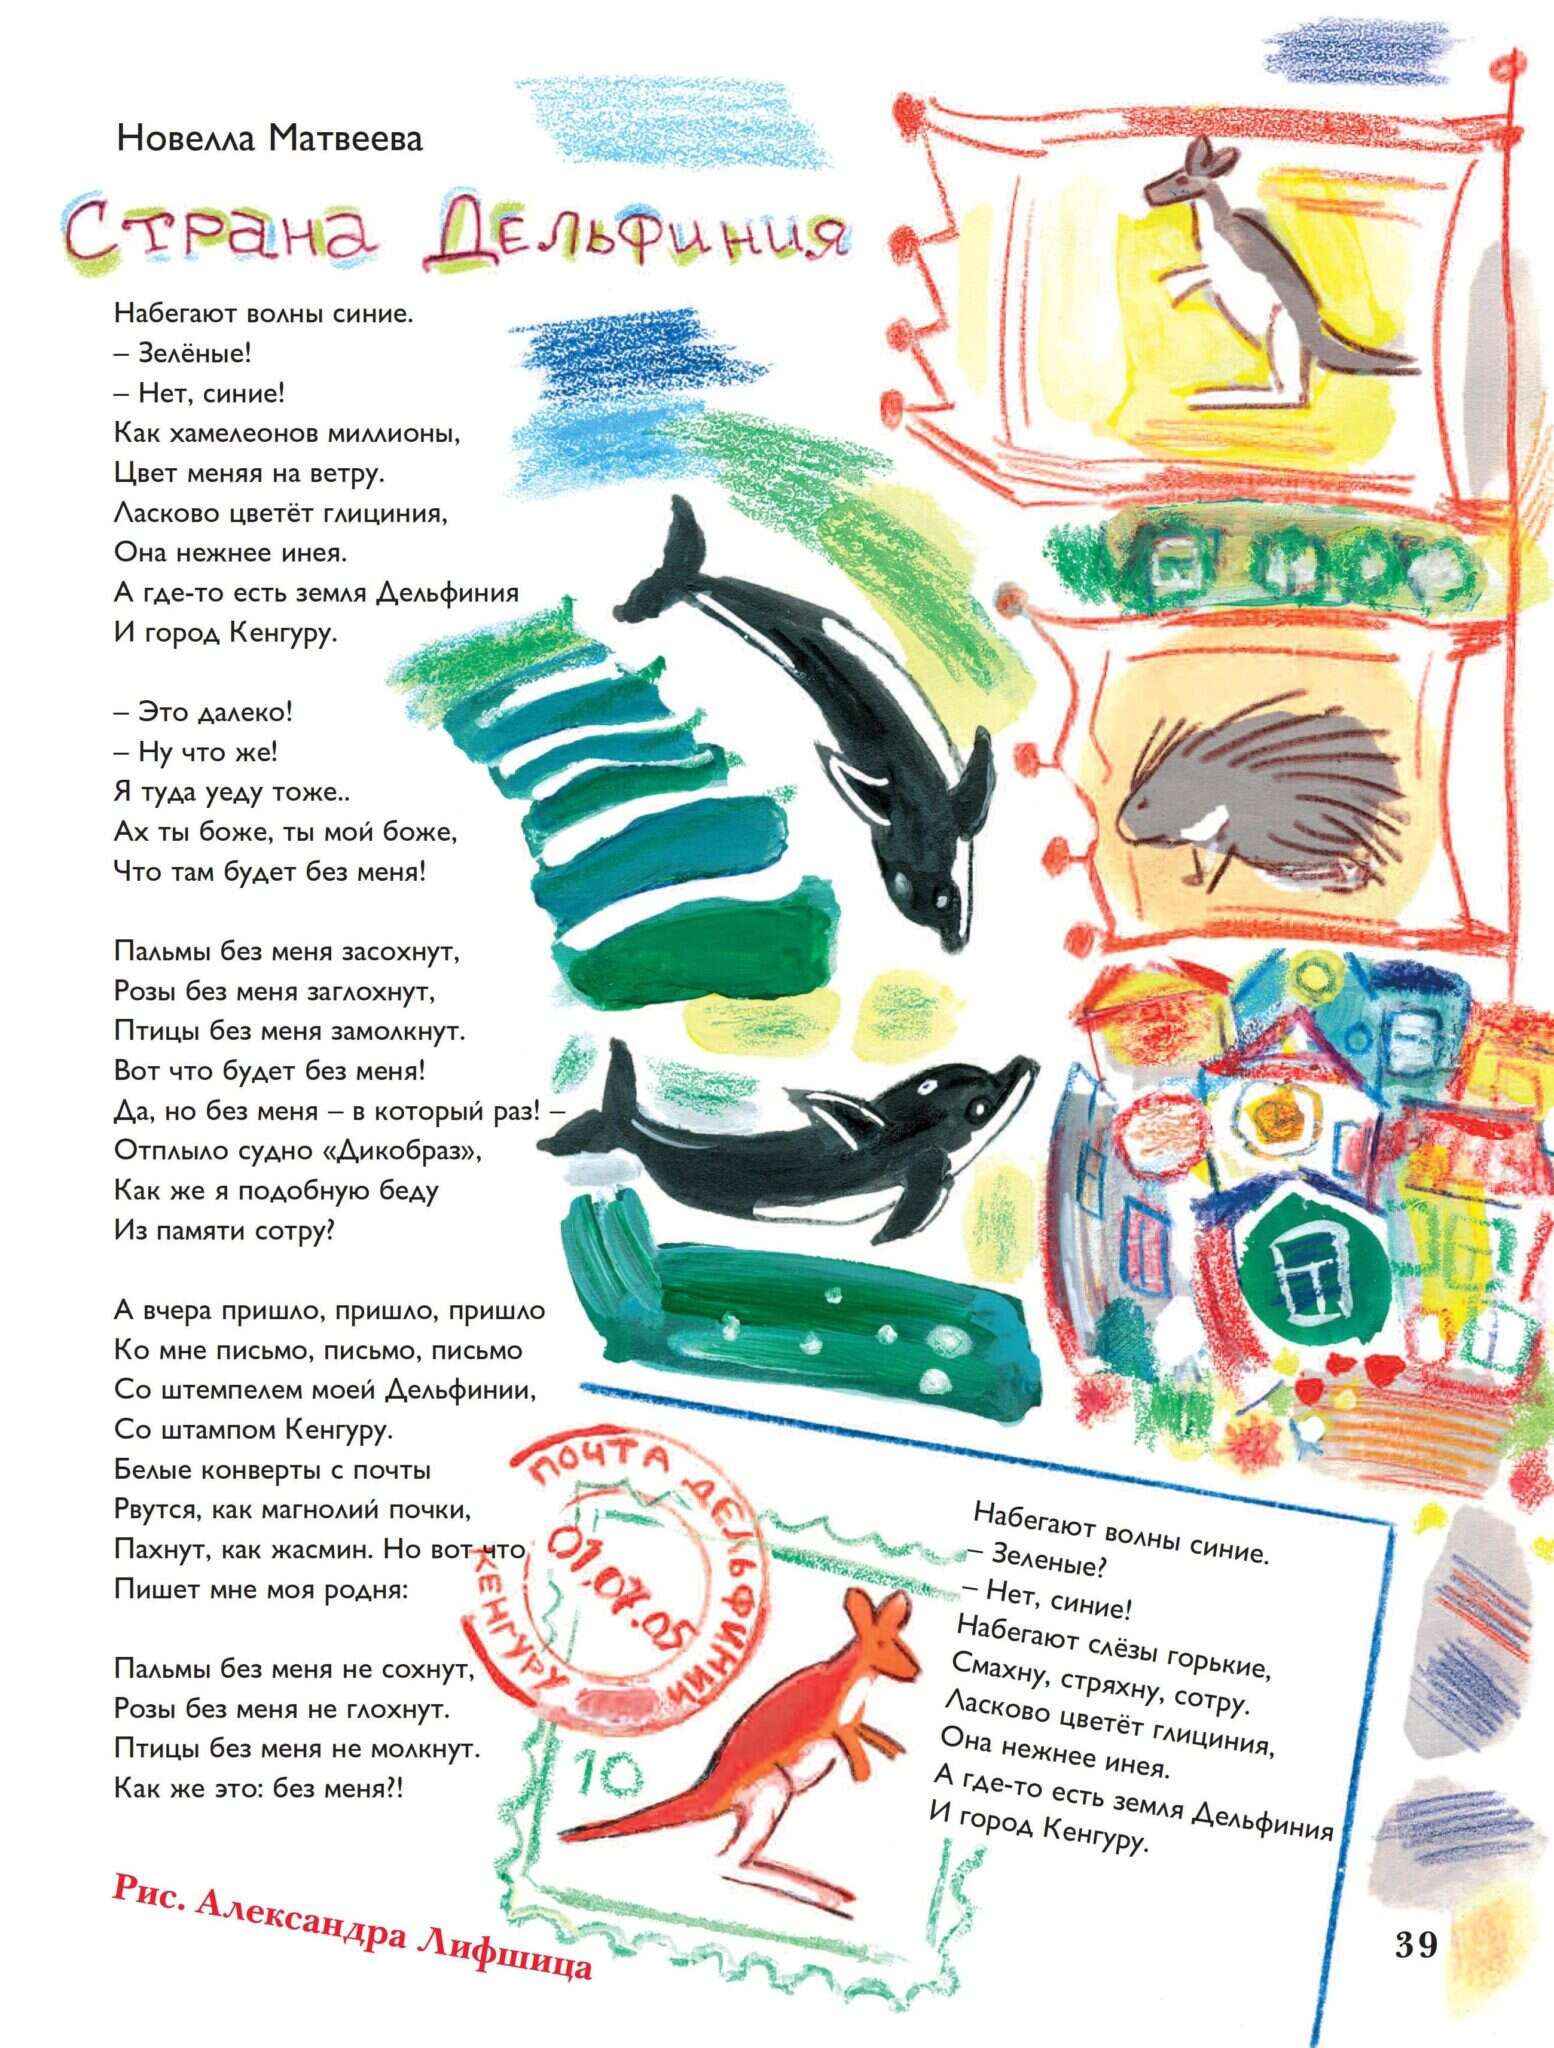 Новелла Матвеева
Страна Дельфиния
Набегают волны синие.
– Зелёные!
– Нет, синие!
Как хамелеонов миллионы,
Цвет меняя на ветру.
Ласково цветёт глициния,
Она нежнее инея.
А где-то есть земля Дельфиния
И город Кенгуру.
– Это далеко!
– Ну что же!
Я туда уеду тоже..
Ах ты боже, ты мой боже,
Что там будет без меня!
Пальмы без меня засохнут,
Розы без меня заглохнут,
Птицы без меня замолкнут.
Вот что будет без меня!
Да, но без меня – в который раз! –
Отплыло судно «Дикобраз»,
Как же я подобную беду
Из памяти сотру?
А вчера пришло, пришло, пришло
Ко мне письмо, письмо, письмо
Со штемпелем моей Дельфинии,
Со штампом Кенгуру.
Белые конверты с почты
Рвутся, как магнолий почки,
Пахнут, как жасмин. Но вот что
Пишет мне моя родня:
Пальмы без меня не сохнут,
Розы без меня не глохнут.
Птицы без меня не молкнут.
Как же это: без меня?!
ПОЧТА ДЕЛЬФИНИИ
КЕНГУРУ
01.07.05
10
Набегают волны синие.
– Зеленые?
– Нет, синие!
Набегают слёзы горькие,
Смахну, стряхну, сотру.
Ласково цветёт глициния,
Она нежнее инея.
А где-то есть земля Дельфиния
И город Кенгуру.
Рис. Александра Лифшица
39